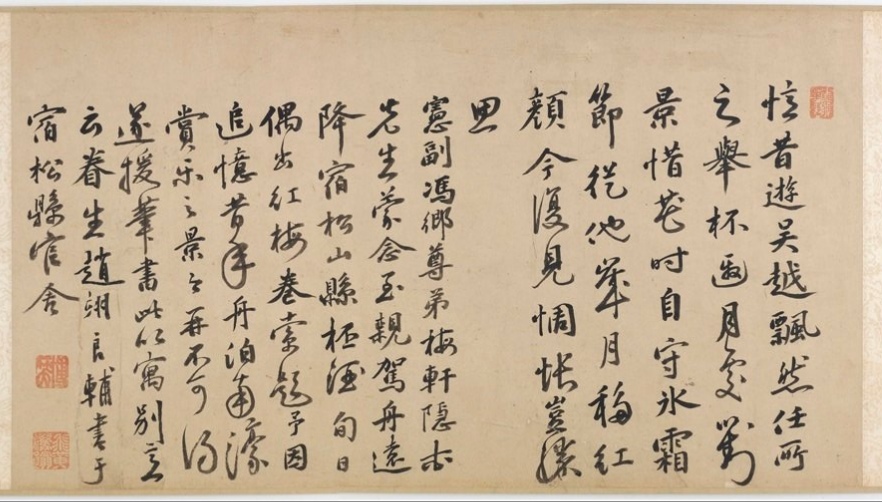 憶昔遊吳越飄然任所
之舉杯邀月處對
景惜花時自守冰霜
節從他歲月移紅
顏今復見惆悵豈勝
思
憲副馮鄉尊弟梅軒隱士
先生蒙念至親駕舟遠
降宿松山縣杯酒旬日
偶出紅梅卷索題予因
追憶昔年舟泊南濠
賞樂之景之再不可得
遂援筆書此以寓別意
云眷生趙翊良輔書于
宿松縣官舍